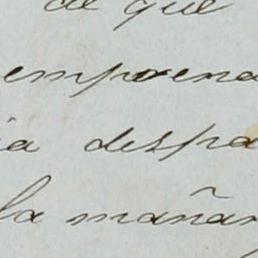 de que
empoena
ia despa
la mañan